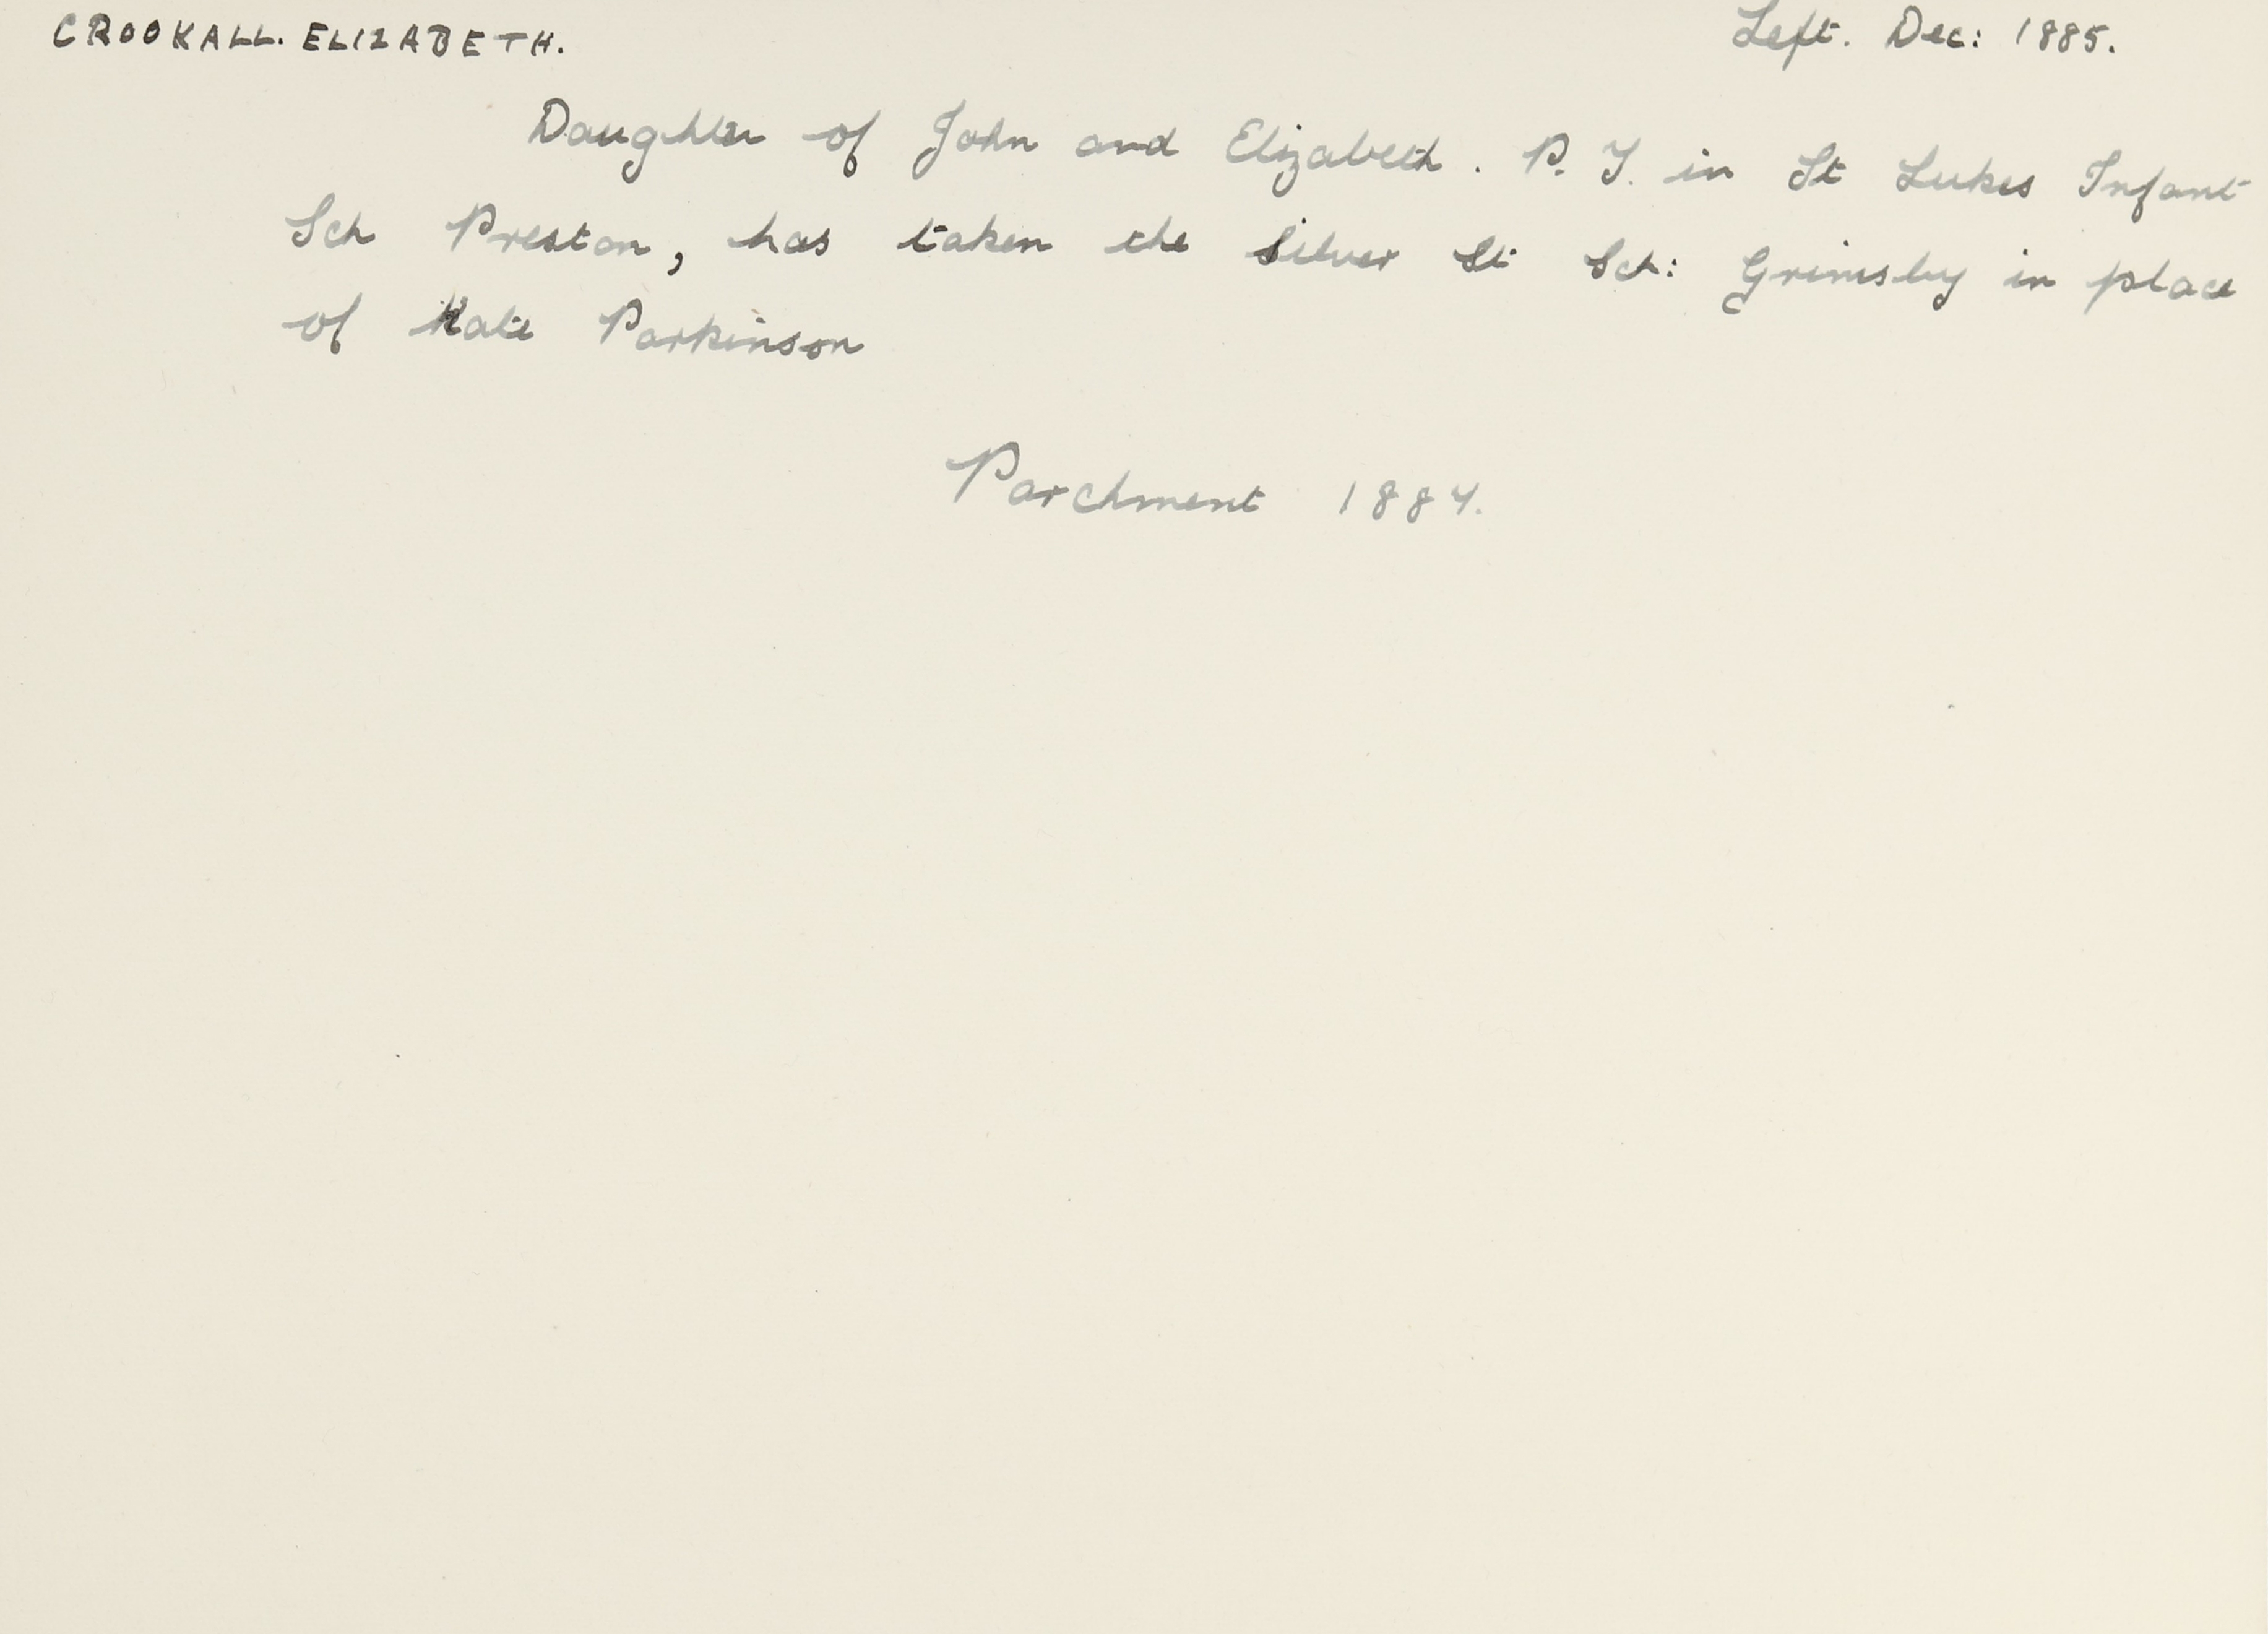 CROOKALL. ELIZABETH. Left. Dec: 1885.
Daughter of John and Elizabeth. P. T. in St Lukes Infant
Sch Preston, has taken the Silver St Sch: Grimsby in place
of Kate Parkinson
Parchment 1887.